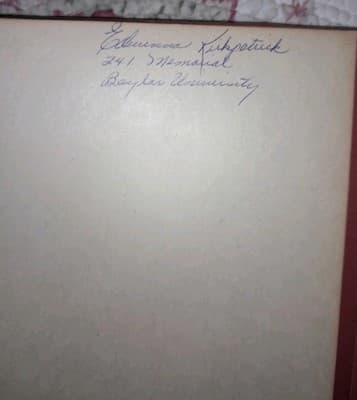 Edwenna Kirkpatrick
241 Memorial
Baylor University